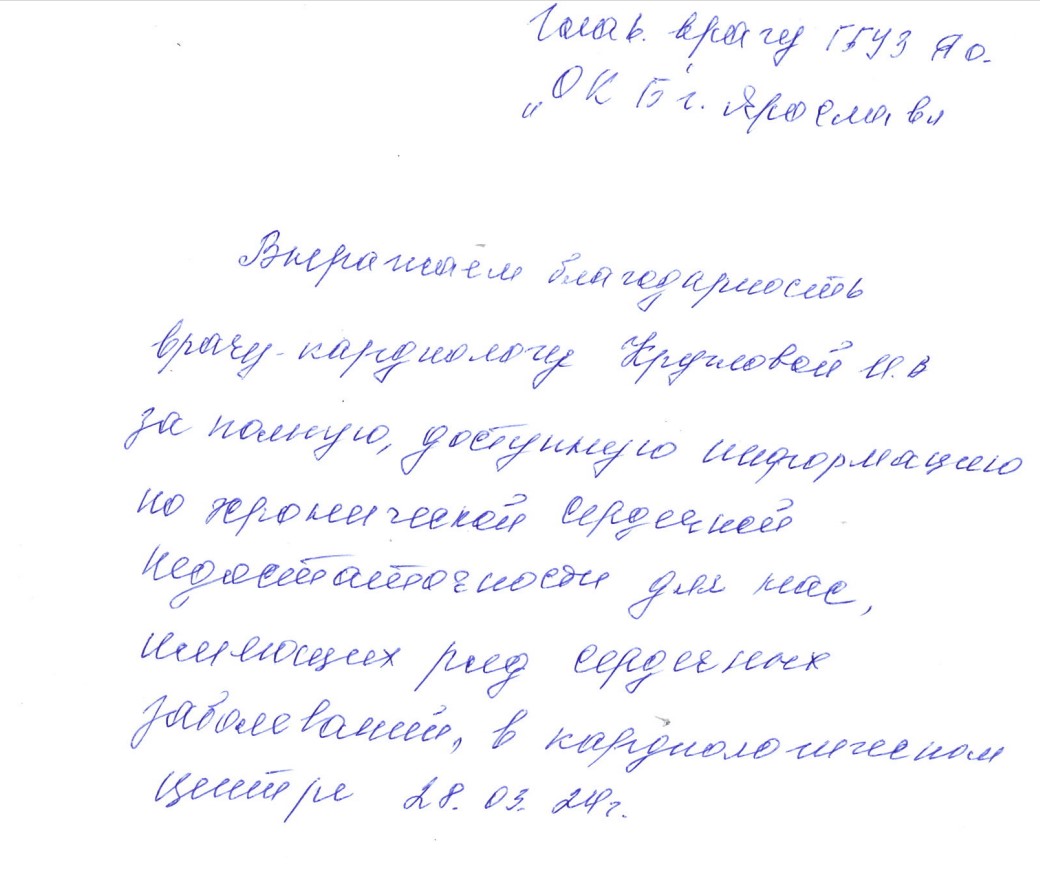 Глав. врачу ГБУЗ Яо.
„ОКБ г. Ярославл
Выражаем благодарность
врачу-кардиологу Кругловой И.В
за полную, доступную информацию
по хронической сердечной
недостаточности для нас,
имеющих ряд сердечных
заболеваний, в кардиологическом
центре 28.03.24г.